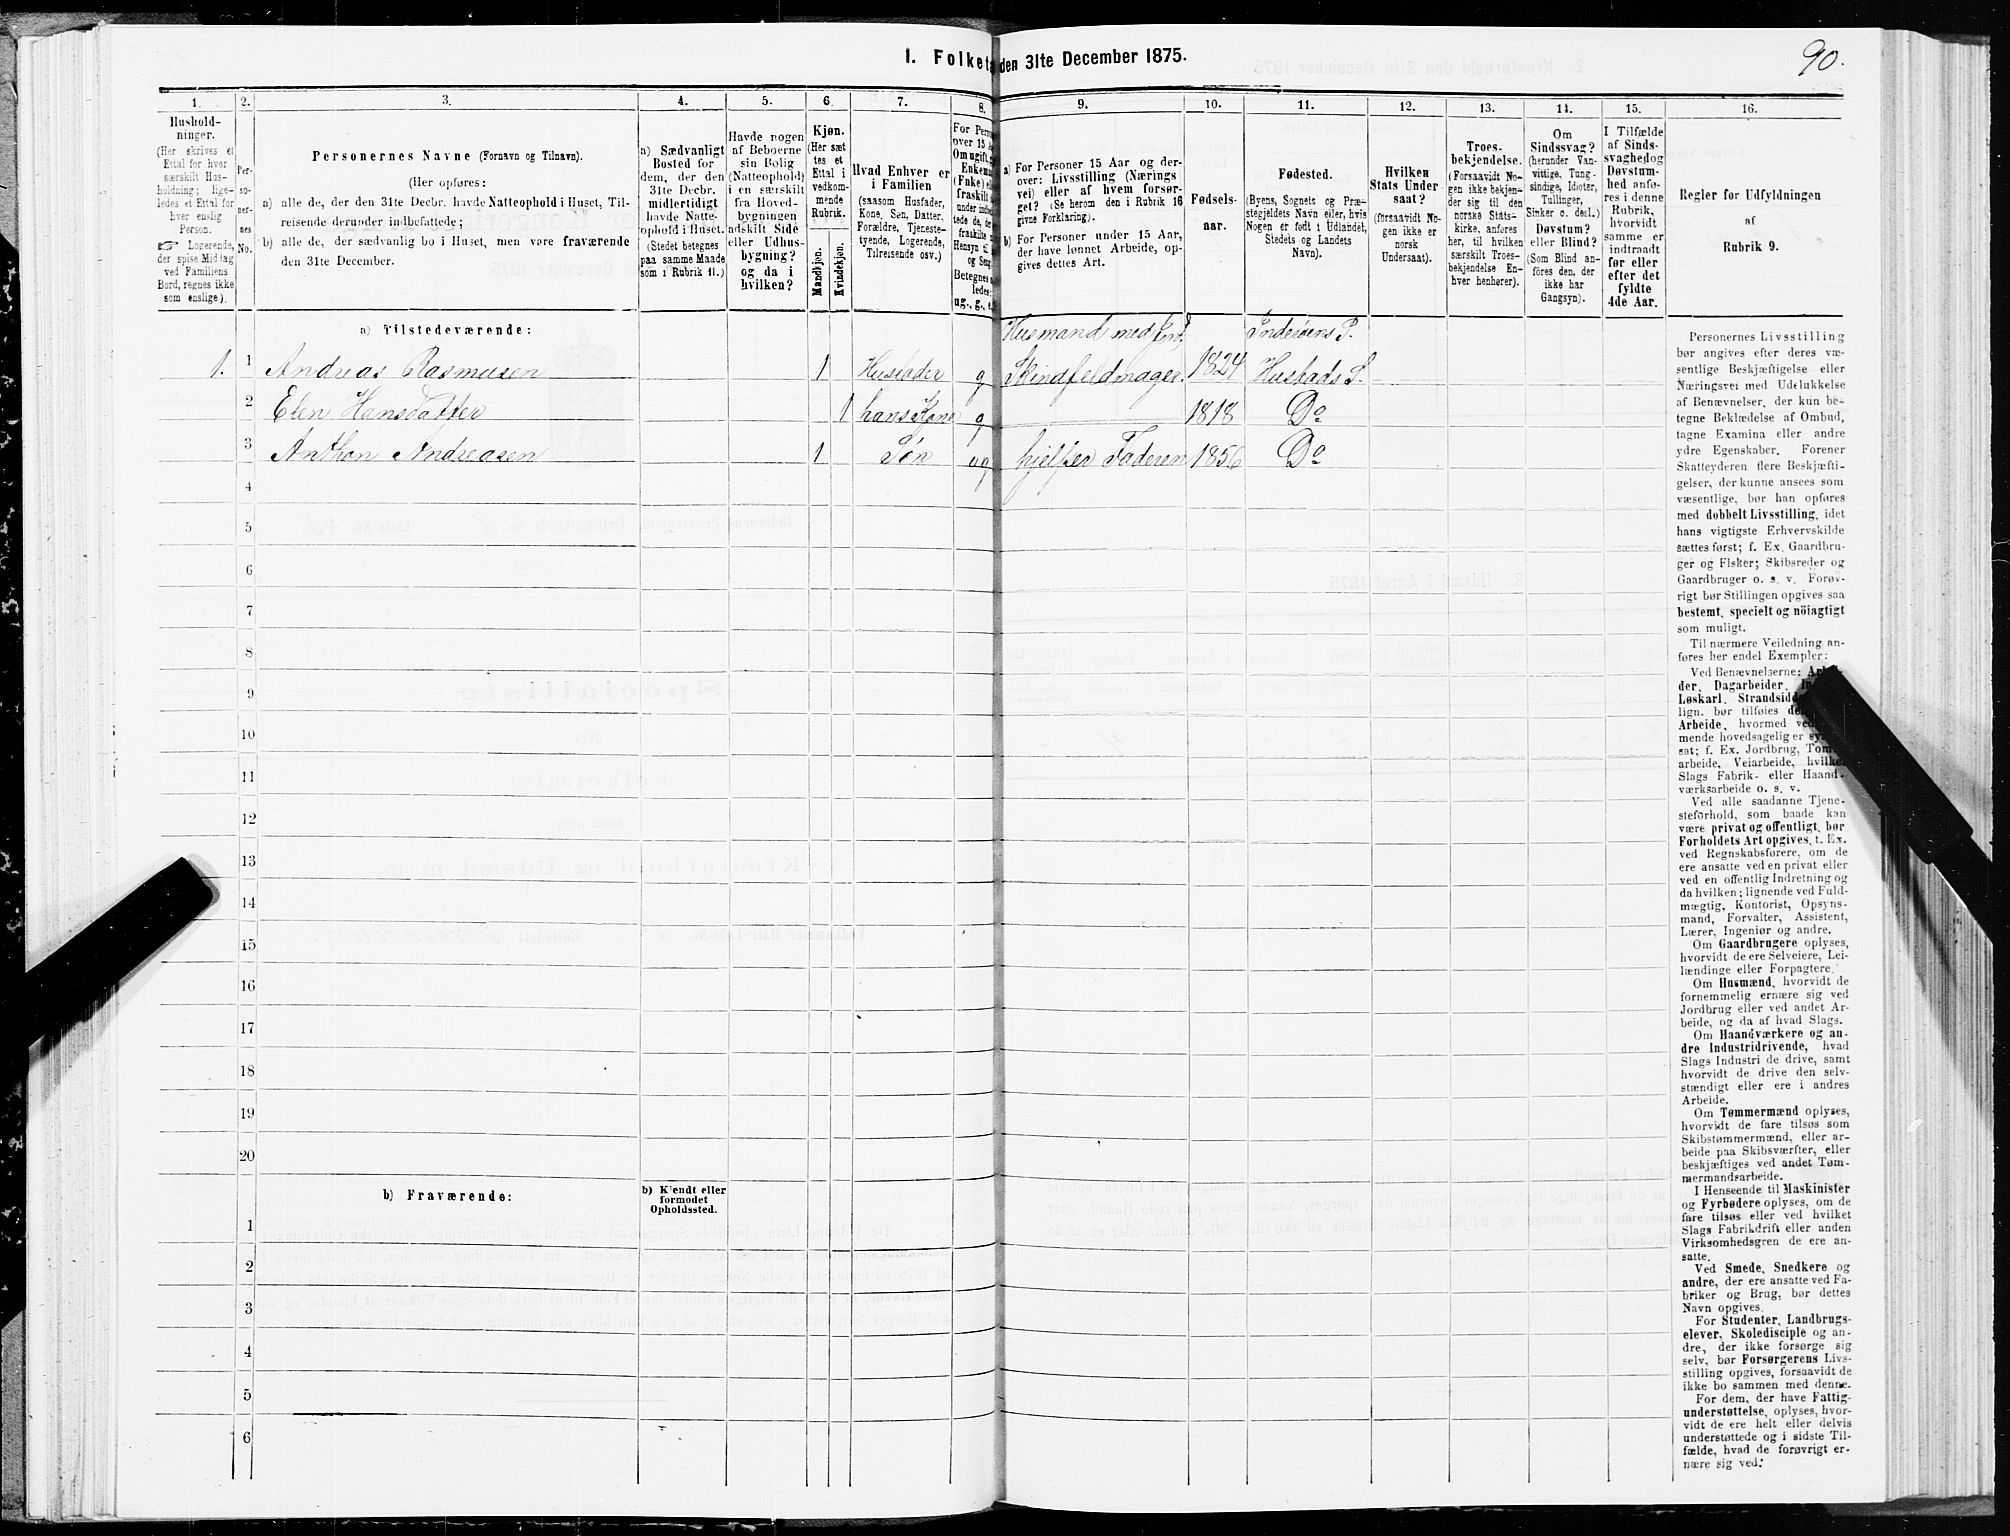 I. Folketa den 31te December 1875.
90.
1.
2.
3.
4.
5.
6.
7.
8.
9.
10.
11.
12.
13.
14.
15.
16.
Hushold-
ninger.
(Her skrives et
Ettal for hver
særskilt Hus-
holdning; lige-
ledes et Ettal for
hver enslig
Person.
☞ Logerende,
der spise Middag
ved Familiens
Bord, regnes ikke
som enslige).
Per-
so-
ner-
nes
No.
Personernes Navne (Fornavn og Tilnavn).
(Her opføres:
a) alle de, der den 31te Decbr. havde Natteophold i Huset, Til-
reisende derunder indbefattede;
b) alle de, der sædvanlig bo i Huset, men vare fraværende
den 31te December.
a) Sædvanligt
Bosted for
dem, der den
31te Decbr.
midlertidigt
havde Natte-
ophold i Huset.
(Stedet betegnes
paa samme Maade
som i Rubrik 11.)
Havde nogen
af Beboerne
sin Bolig
(Natteophold)
i en særskilt
fra Hoved-
bygningen
adskilt Side
eller Udhus-
bygning?
og da i
hvilken?
Kjøn.
(Her sæt
tes et
Ettal i
vedkom-
mende
Rubrik.
Mandkjøn.
Kvindekjøn.
Hvad Enhver er
i Familien
(saasom Husfader,
Kone, Søn, Datter,
Forældre, Tjeneste-
tyende, Logerende,
Tilreisende osv.)
For Perso
over 15 A
Om ugift,
Enkem
(Enke) e
fraskilt
ug., g., e.
a) For Personer 15 Aar og der-
over: Livsstilling (Nærings
vei) eller af hvem forsør-
get? (Se herom den i Rubrik 16
givne Forklaring).
b) For Personer under 15 Aar,
der have lønnet Arbeide, op-
gives dettes Art.
Fødsels-
aar.
Fødested.
(Byens, Sognets og Præ-
stegjeldets Navn eller, hvis
Nogen er født i Udlandet,
Stedets og Landets
Navn).
Hvilken
Stats Under-
saat?
(forsaavidt No-
gen ikke er
norsk
Undersaat).
Troes-
bekjendelse.
(Forsaavidt No-
gen ikke bekjen-
der sig til den
norske Stats-
kirke, anføres
her, til hvilken
særskilt Troes-
bekjendelse En-
hver henhører).
Om
Sindssvag?
(herunder Van-
vittige, Tung-
sindige, Idioter,
Tullinger,
Sinker o. desl.)
Døvstum?
eller Blind?
(Som Blind an-
føres den, der
ikke har
Gangsyn).
I Tilfælde
af Sinds-
svaghed og
Døvstum-
hed anfø-
res i denne
Rubrik,
hvorvidt
samme er
indtraadt
før eller
efter det
fyldte
4de Aar.
Regler for Udfyldningen
af
Rubrik 9.
a) Tilstedeværende:
Husmand med Jord, Inderøens P.
1. 1 Andreas Rasmusen 1 Husfader g Skindfeldmager. 1824 Hustads S.
2 Elen Hansdatter 1 hans Kone g 1818 Do
3 Anthon Andreasen 1 Søn ug hjelper Faderen 1856 Do
4
5
6
7
8
9
10
11
12
13
14
15
16
17
18
19
20
b) Fraværende:
b) Kjendt eller
formodet
Opholdssted.
1
2
3
4
5
6
Personernes Livsstilling
bør angives efter deres væ-
sentlige Beskjæftigelse eller
Næringsvei med Udelukkelse
af Benævnelser, der kun be-
tegne Beklædelse af Ombud,
tagne Examina eller andre
ydre Egenskaber. Forener
Skatteyderen flere Beskjæfti-
gelser, der kunne ansees som
væsentlige, bør han opføres
med dobbelt Livsstilling, idet
hans vigtigste Erhvervskilde
sættes først; f. Ex. Gaardbru-
ger og Fisker; Skibsreder og
Gaardbruger o. s. v. Forøv-
rigt bør Stillingen opgives saa
bestemt, specielt og nöiagtigt
som muligt.
Til nærmere Veiledning an-
føres her endel Exempler:
Ved Benævnelserne: Ar
der, Dagarbeider,
Løskarl, Strandsid
lign. bør tilføies
Arbeide, hvormed ved
mende hovedsagelig er
sat; f. Ex. Jordbrug, Tøm
arbeide, Veiarbeide, hvilke
Slags Fabrik- eller Haand-
værksarbeide o. s. v.
Ved alle saadanne Tjene-
steforhold, som baade kan
være privat og offentligt, bør
Forholdets Art opgives, t. Ex.
ved Regnskabsførere, om de
ere ansatte ved en privat eller
ved en offentlig Indretning og
da hvilken; lignende ved Fuld-
mægtig, Kontorist, Opsyns-
mand, Forvalter, Assistent,
Lærer, Ingeniør og andre.
Om Gaardbrugere oplyses,
hvorvidt de ere Selveiere, Lei-
lændinge eller Forpagtere.
Om Husmænd, hvorvidt de
fornemmelig ernære sig ved
Jordbrug eller ved andet Ar-
beide, og da af hvad Slags.
Om Haandværkere og an-
dre Industridrivende, hvad
Slags Industri de drive, samt
hvorvidt de drive den selv-
stændigt eller ere i andres
Arbeide.
Om Tømmermænd oplyses,
hvorvidt de fare tilsøs som
Skibstømmermænd, eller ar-
beide paa Skibsværfter, eller
beskjæftiges ved andet Tøm-
mermandsarbeide.
I Henseende til Maskinister
og Fyrbødere oplyses, om de
fare tilsøs eller ved hvilket
Slags Fabrikdrift eller anden
Virksomhedsgren de ere an-
satte.
Ved Smede, Snedkere og
andre, der ere ansatte ved Fa-
briker og Brug, bør dettes
Navn opgives.
For Studenter, Landbrugs-
elever, Skoledisciple og an-
dre, der ikke forsørge sig
selv, bør Forsørgerens Livs-
stilling opgives, forsaavidt de
ikke bo sammen med denne.
For dem, der have Fattig-
understøttelse, oplyses, hvor-
vidt de ere helt eller delvis
understøttede og i sidste Til-
fælde, hvad de forøvrigt er-
nære sig ved.